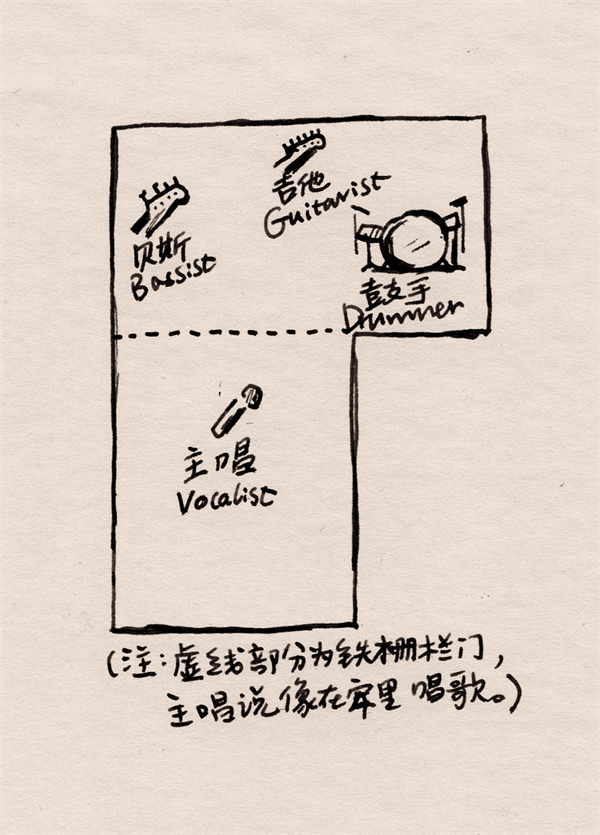 吉他
Guitarist
贝斯
Bassist
鼓手
Drummer
主唱
Vocalist
(注:虚线部分为铁栅栏门,
主唱说像在牢里唱歌。)